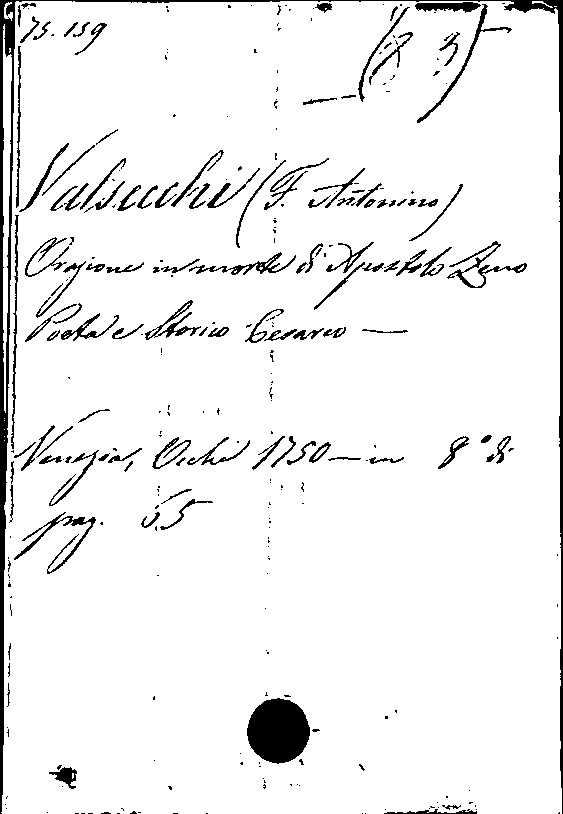 75.159
(8 3)
Valsecchi (F. Antonino)
Orazione in morte di Apostolo Zeno
Poeta e Storico Cesareo —
Venezia, Occhi 1750 — in 8° di
pag. 55